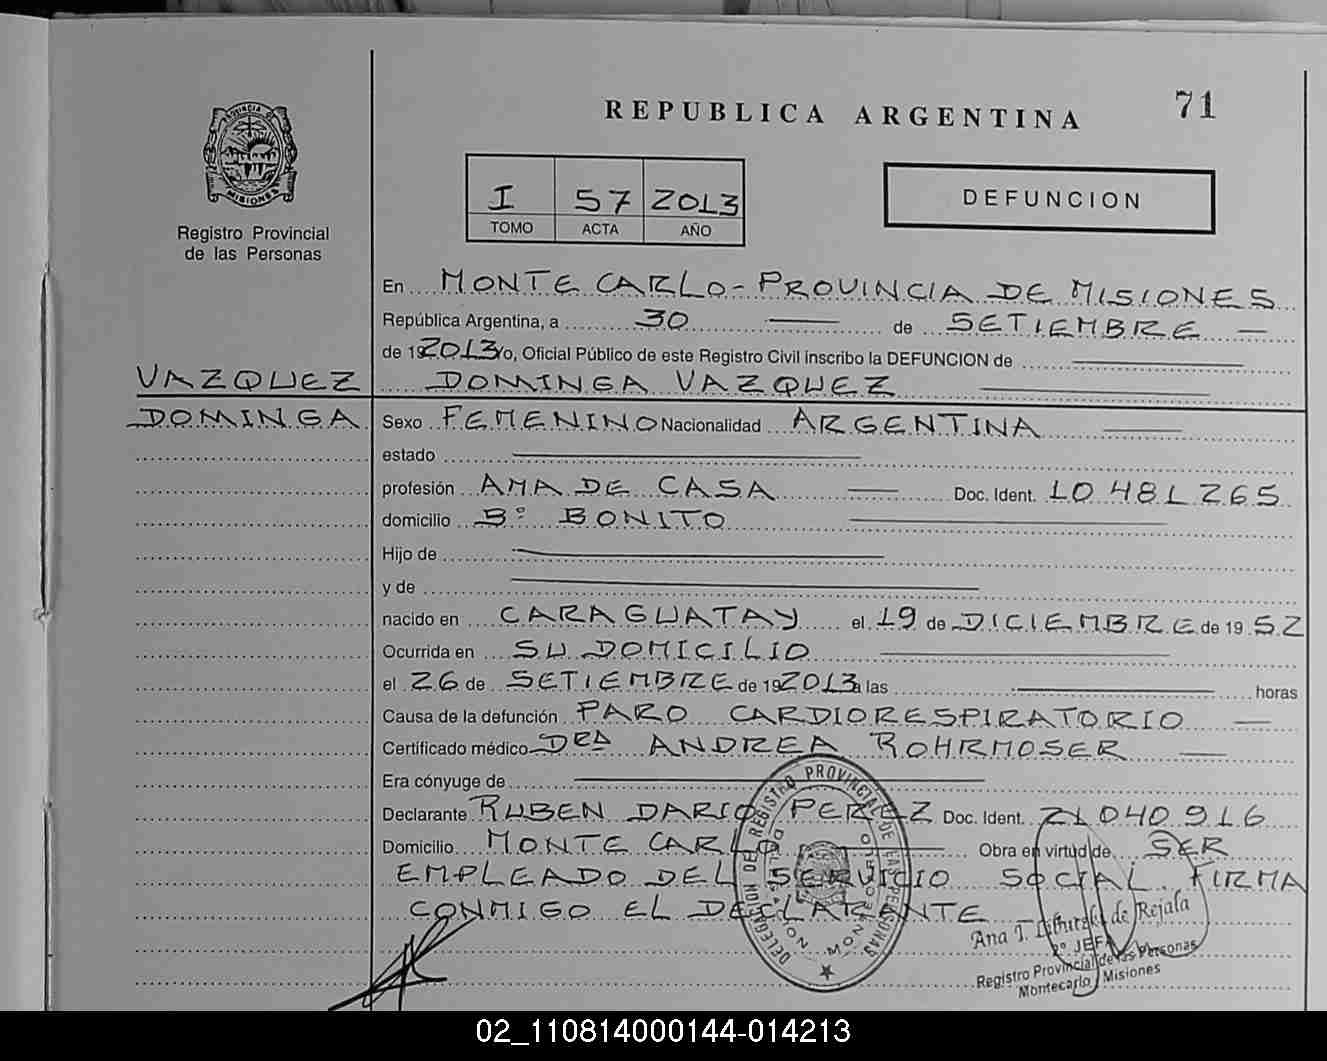 REPUBLICA ARGENTINA 71
PROVINCIA DE
MISIONES
Registro Provincial
de las Personas
I 57 2013
TOMO ACTA AÑO
DEFUNCION
En MONTE CARLO - PROVINCIA DE MISIONES
República Argentina, a 30 de SETIEMBRE
de 192013 yo, Oficial Público de este Registro Civil inscribo la DEFUNCION de
VAZQUEZ DOMINGA VAZQUEZ
DOMINGA Sexo FEMENINO Nacionalidad ARGENTINA
estado
profesión AMA DE CASA Doc. Ident. 10 481 265
domicilio Bº BONITO
Hijo de
y de
nacido en CARAGUATAY el 19 de DICIEMBRE de 19 52
Ocurrida en SU DOMICILIO
el 26 de SETIEMBRE de 192013 a las horas
Causa de la defunción PARO CARDIORESPIRATORIO
Certificado médico DRA ANDREA ROHRMOSER
Era cónyuge de
Declarante RUBEN DARIO PEREZ Doc. Ident. 21 040 916
Domicilio MONTE CARLO Obra en virtud de SER
EMPLEADO DEL SERVICIO SOCIAL. FIRMA
CONMIGO EL DECLARANTE
DELEGACION DE REGISTRO PROVINCIAL DE LAS PERSONAS
Ana J. de Rejala
2º JEFA
Registro Provincial de las Personas
Montecarlo Misiones
02_110814000144-014213